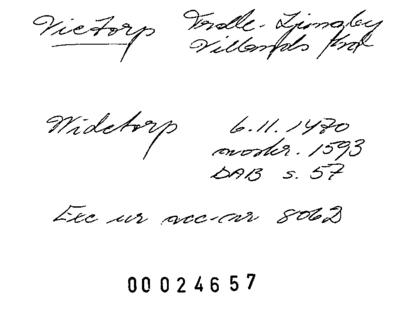 Victorp Trolle-Ljungby
Villands hd
Widetorp 6.11.1470
avskr. 1593
DAB s. 57
Exc ur acc-nr 8062
00024657